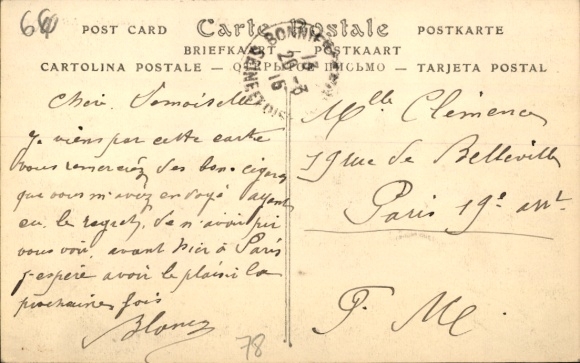 66
POST CARD Carte Postale POSTKARTE
BRIEFKAART — POSTKAART
CARTOLINA POSTALE — ОТКРЫТОЕ ПИСЬМО — TARJETA POSTAL
BONNIERES
26-3
15
Chère Demoiselle
Je viens par cette carte
vous remerciez des bons cigares
que vous m'avez envoyé ayant
eu le regret de n'avoir pu
vous voir avant hier à Paris
j'espère avoir le plaisir la
prochaine fois
78
Mlle Clémence
19 rue de Belleville
Paris 19e arrt
F. M.